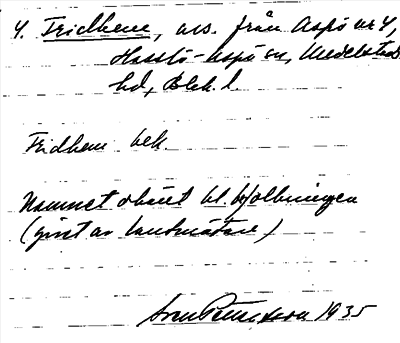 4. Fridhem, avs. från Aspö nr 4,
Hasslö-Aspö sn, Medelstads
hd, Blek. l.
Fridhem bek.
Namnet okänt bl. befolkningen
(givet av lantmätare)
Sven Pettersson 1935